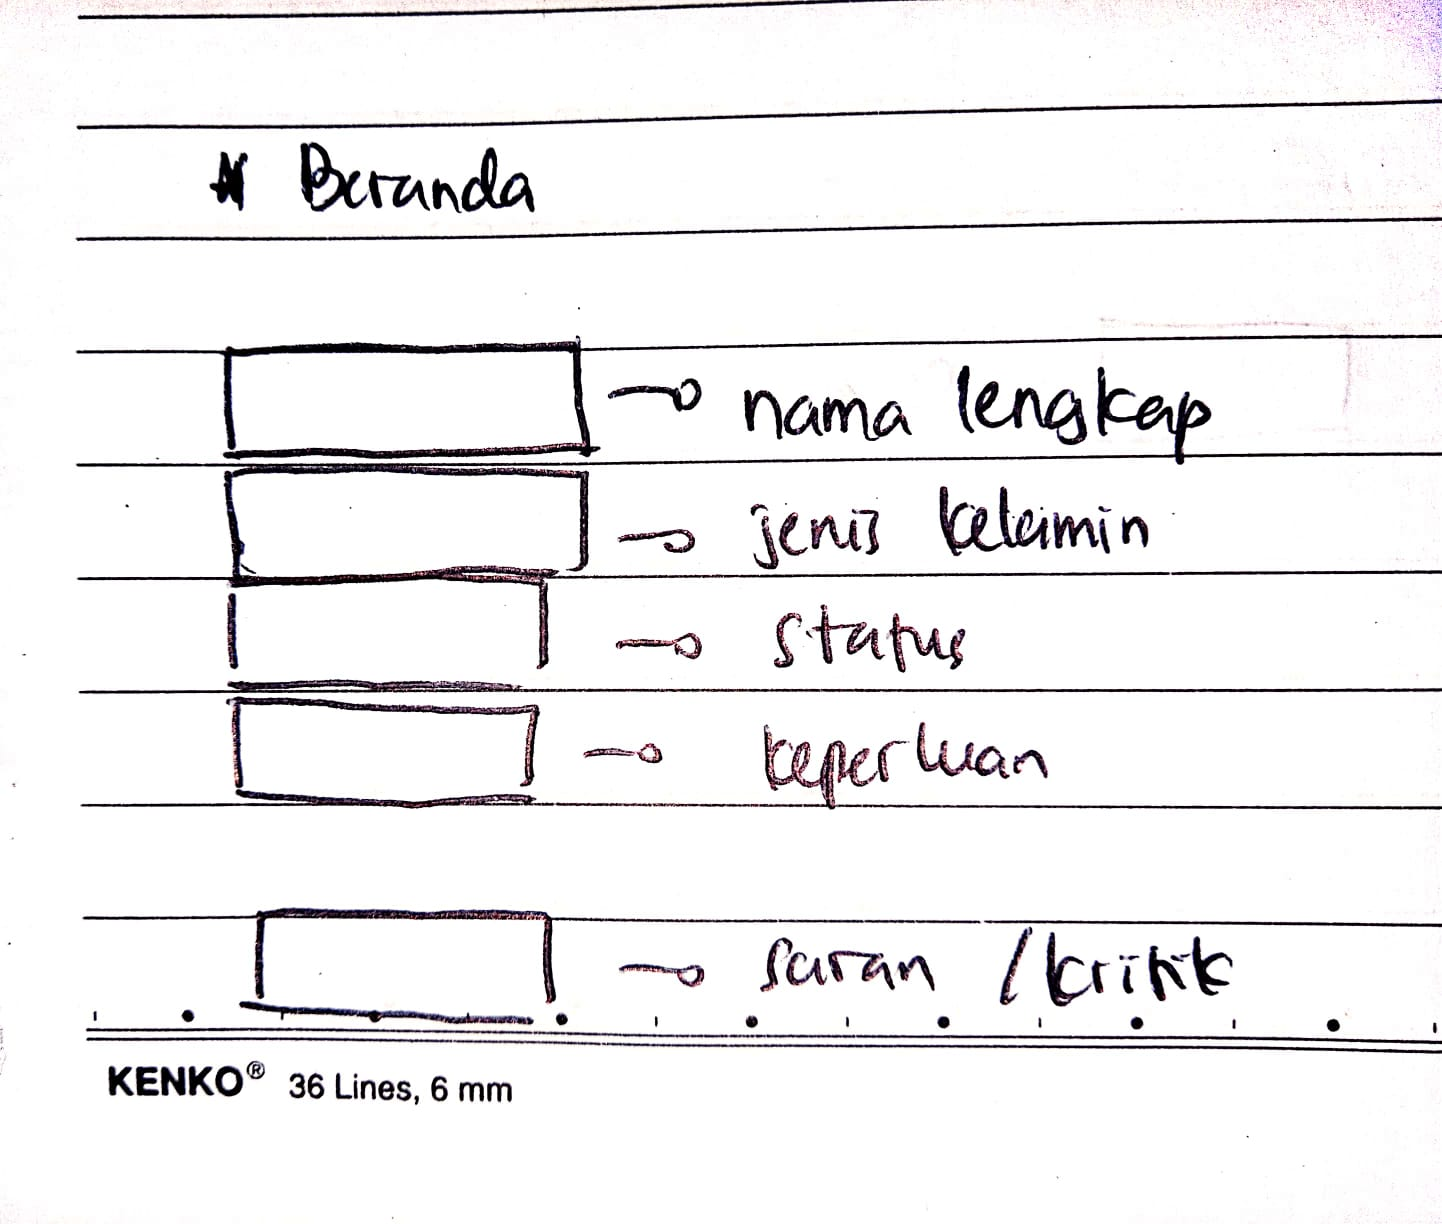 Beranda
nama lengkap
jenis kelamin
status
keperluan
saran / kritik
KENKO® 36 Lines, 6 mm